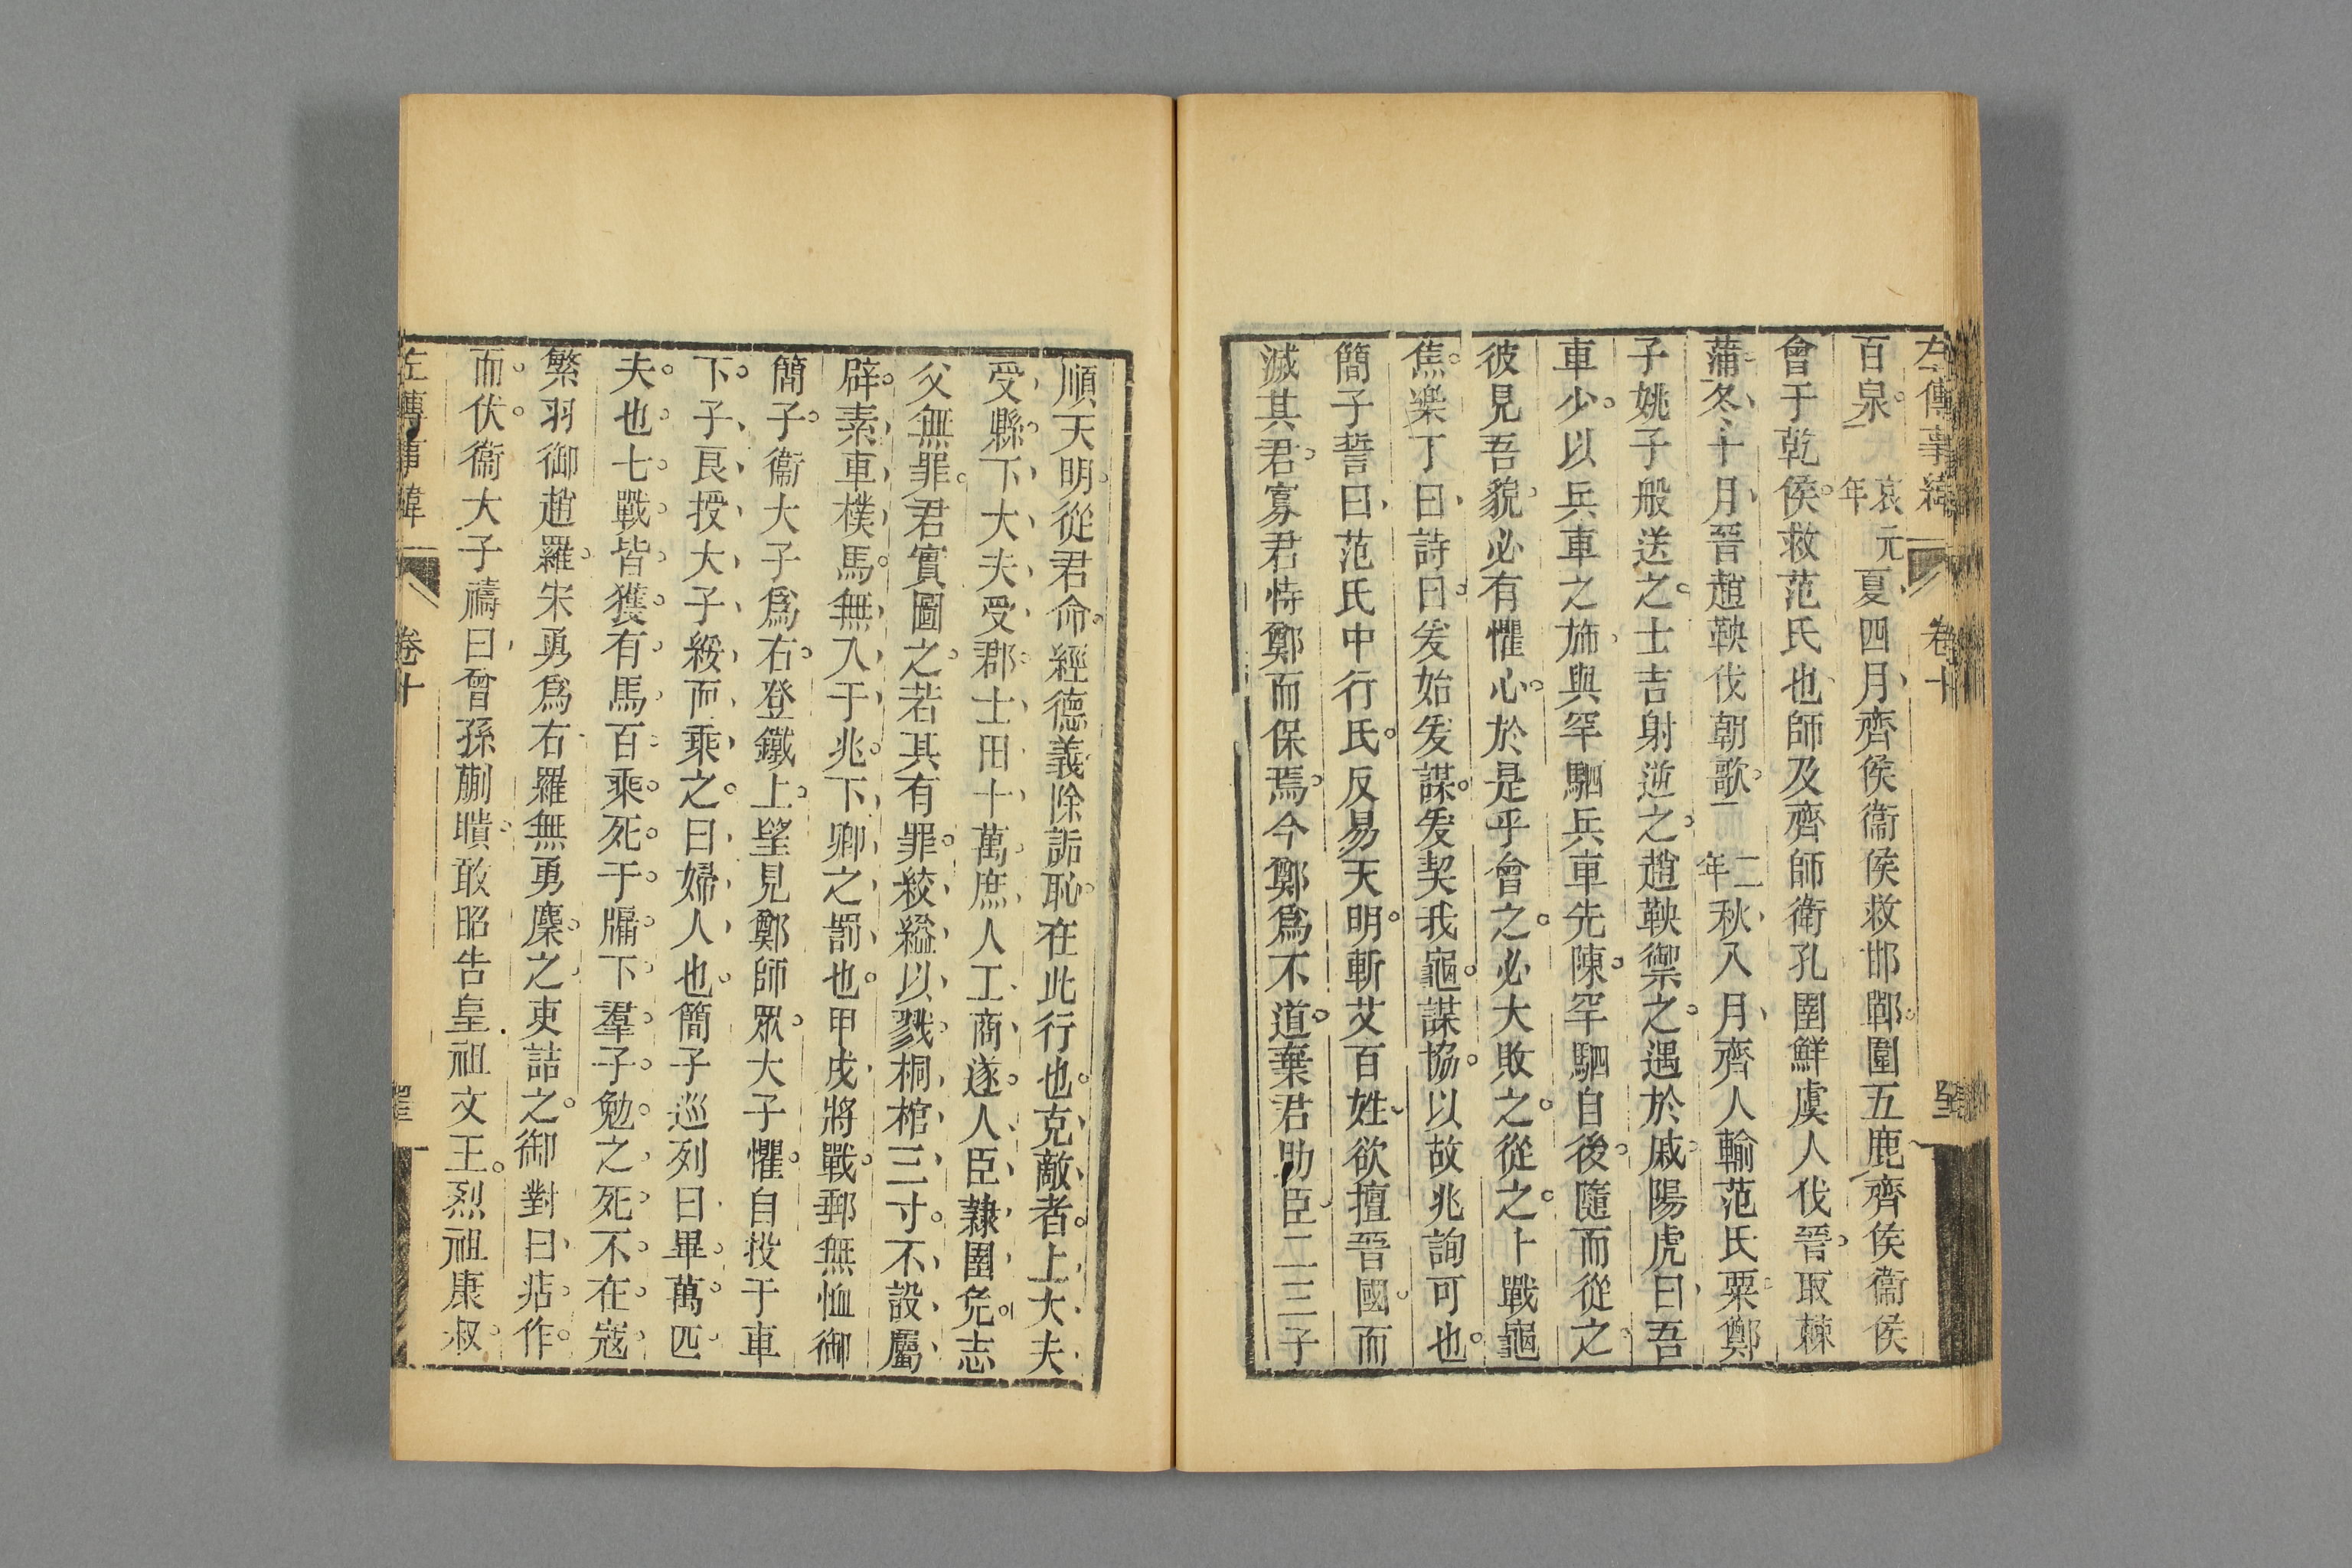 左傳事緯 卷十
百泉哀元年夏四月齊侯衞侯救邯鄲圍五鹿齊侯衞侯
會于乾侯救范氏也師及齊師衛孔圉鮮虞人伐晉取棘
蒲冬十月晉趙鞅伐朝歌二年秋八月齊人輸范氏粟鄭
子姚子般送之士吉射逆之趙鞅禦之遇於戚陽虎曰吾
車少以兵車之旆與罕駟兵車先陳罕駟自後隨而從之
彼見吾貌必有懼心於是乎會之必大敗之從之卜戰龜
焦樂丁曰詩曰爰始爰謀爰契我龜謀協以故兆詢可也
簡子誓曰范氏中行氏反易天明斬艾百姓欲擅晉國而
滅其君寡君恃鄭而保焉今鄭爲不道棄君助臣二三子
順天明從君命經德義除詬恥在此行也克敵者上大夫
受縣下大夫受郡士田十萬庶人工商遂人臣隸圉免志
父無罪君實圖之若其有罪絞縊以戮桐棺三寸不設屬
辟素車樸馬無入于兆下卿之罰也甲戌將戰郵無恤御
簡子衞大子爲右登鐵上望見鄭師眾大子懼自投于車
下子良授大子綏而乘之曰婦人也簡子巡列曰畢萬匹
夫也七戰皆獲有馬百乘死于牖下羣子勉之死不在寇
繁羽御趙羅宋勇爲右羅無勇麇之吏詰之御對曰痁作
而伏衞大子禱曰曾孫蒯聵敢昭告皇祖文王烈祖康叔
左傳事緯 卷十